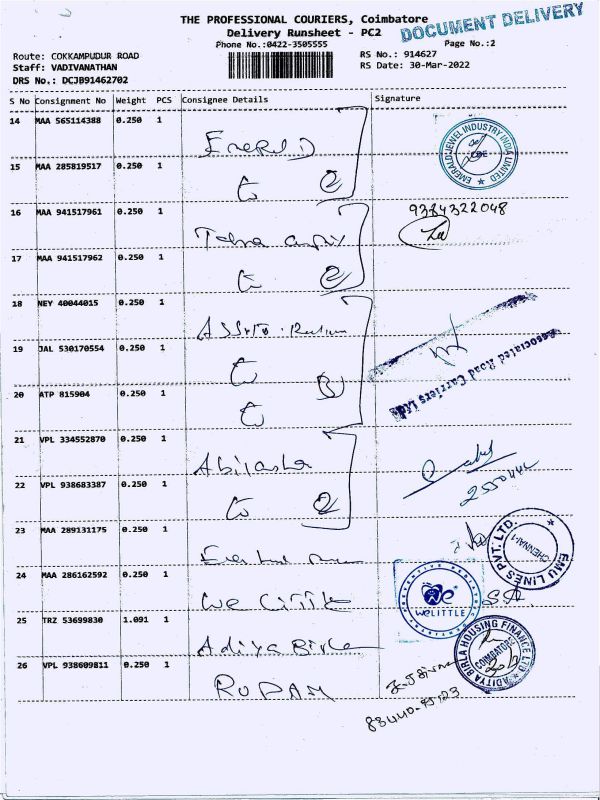 THE PROFESSIONAL COURIERS, Coimbatore
DOCUMENT DELIVERY
Delivery Runsheet - PC2
Phone No.:0422-3505555
Page No.:2
Route: COKKAMPUDUR ROAD
RS No.: 914627
Staff: VADIVANATHAN
RS Date: 30-Mar-2022
DRS No.: DCJB91462702
S No Consignment No Weight PCS Consignee Details Signature
14 MAA 565114388 0.250 1
EMERALD JEWEL INDUSTRY INDIA LIMITED
CBE
15 MAA 285819517 0.250 1
16 MAA 941517961 0.250 1
9384322048
17 MAA 941517962 0.250 1
18 NEY 40044015 0.250 1
19 JAL 530170554 0.250 1
Associated Road Carriers Ltd
20 ATP 815904 0.250 1
21 VPL 334552870 0.250 1
Abirasha
22 VPL 938683387 0.250 1
23 MAA 289131175 0.250 1
EMU LINES PVT. LTD.
CHENNAI-1
24 MAA 286162592 0.250 1
We Little
WELITTLE
25 TRZ 53699830 1.091 1
Aditya Birla
ADITYA BIRLA HOUSING FINANCE LTD
COIMBATORE
26 VPL 938609811 0.250 1